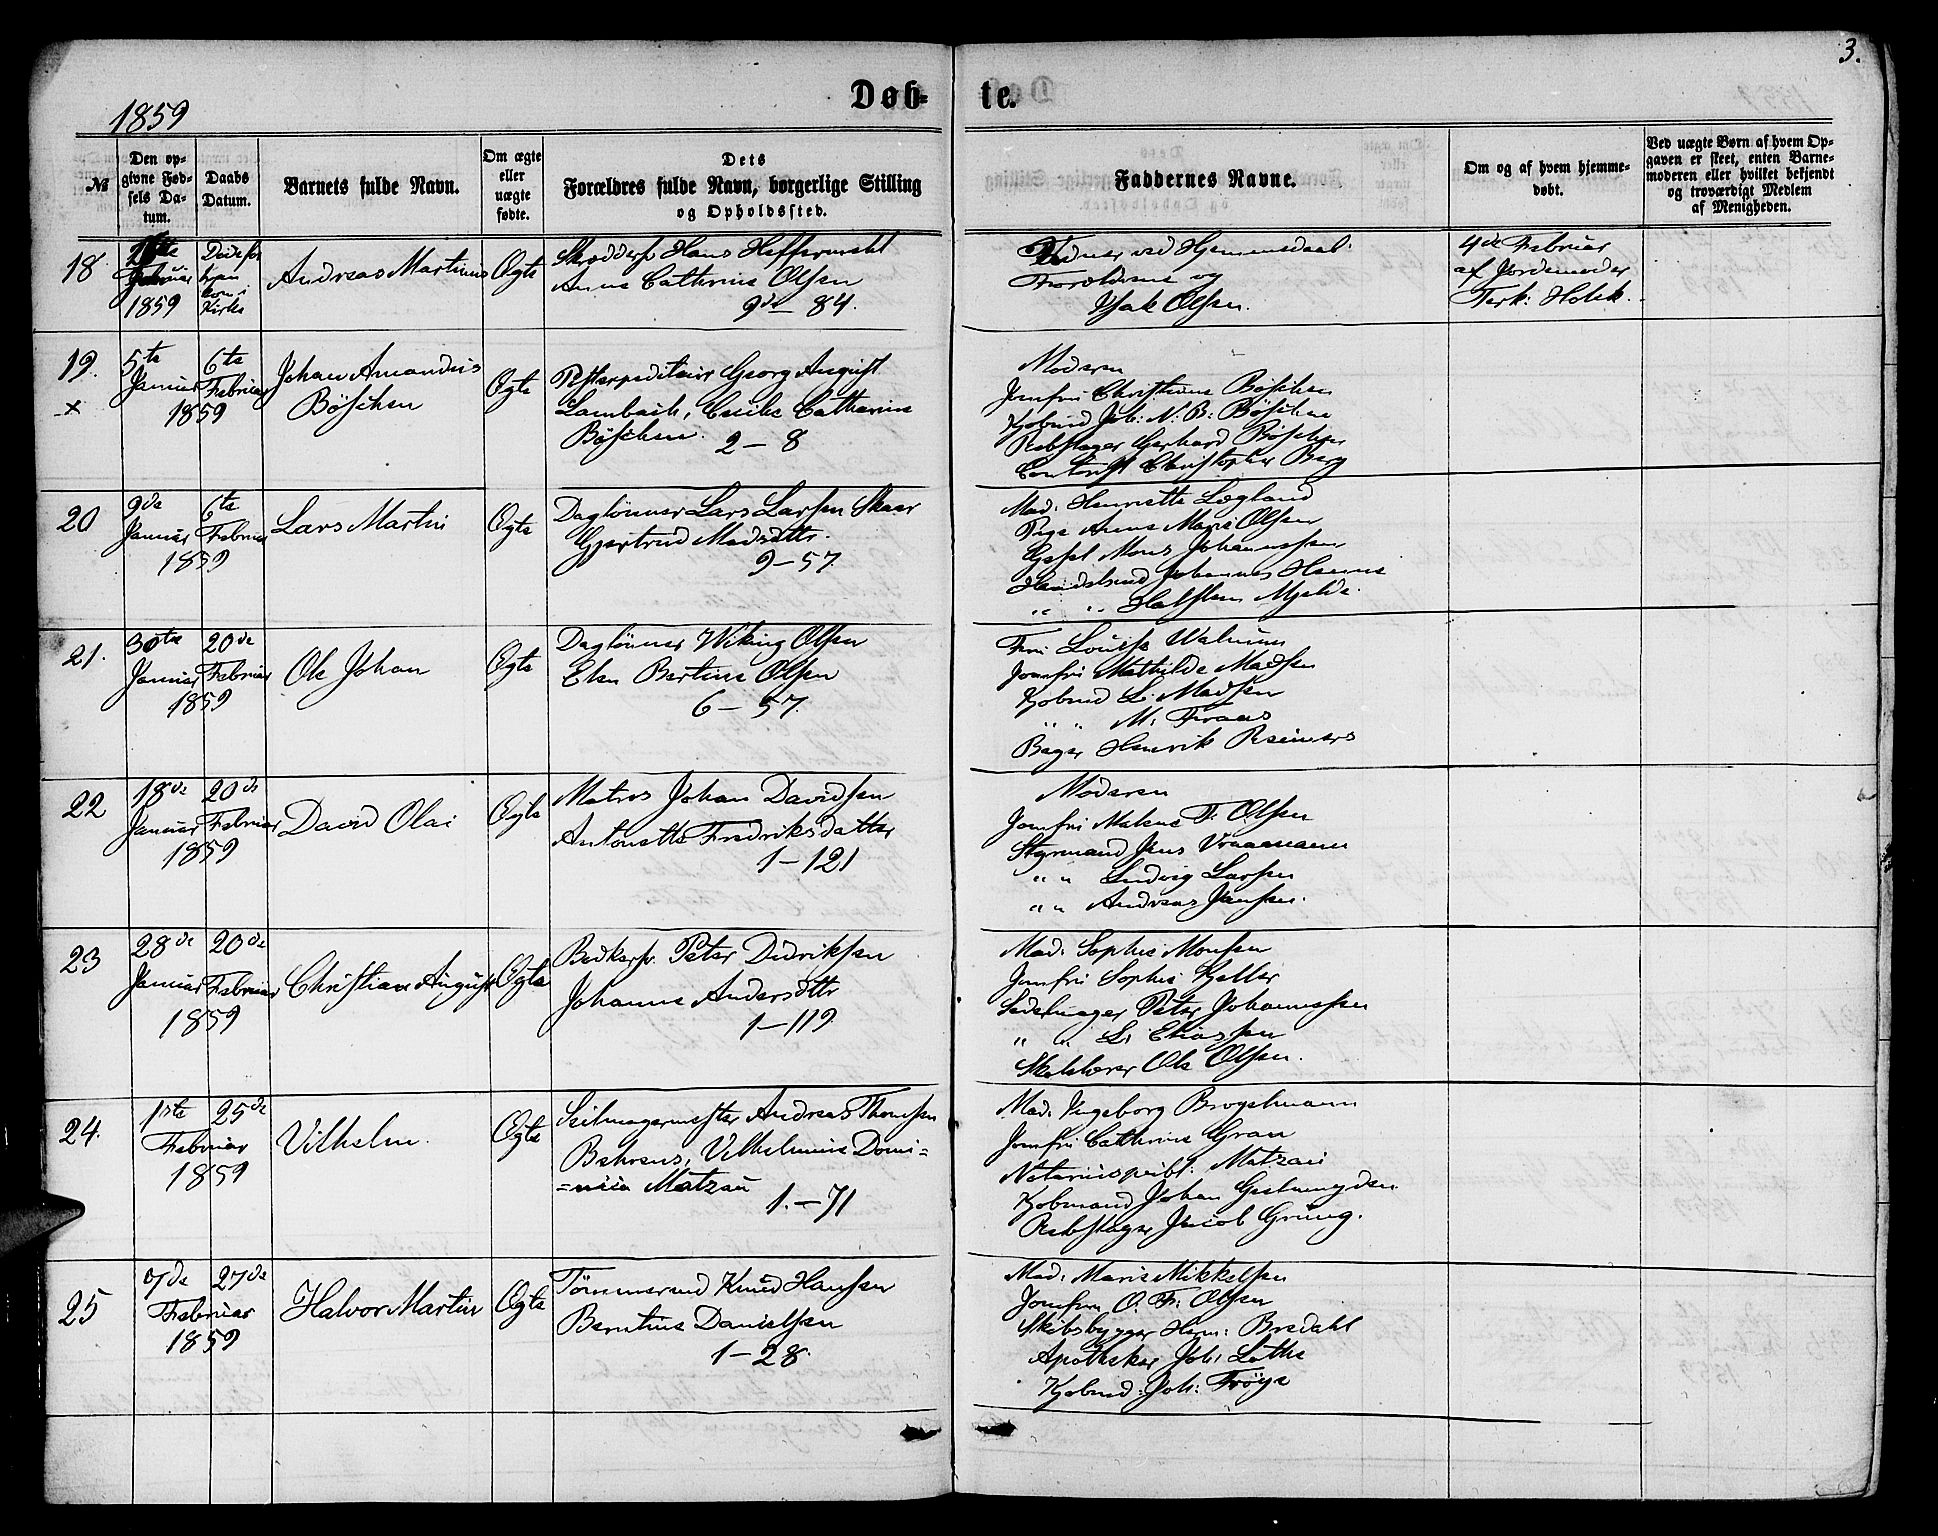 3.
1859
Døb= te.
№
Den op-
givne Fød-
sels Da-
tum.
Daabs
Datum.
Barnets fulde Navn.
Om ægte
eller
uægte
fødte.
Dets
Forældres fulde Navn, borgerlige Stilling
og Opholdssted.
Faddernes Navne.
Om og af hvem hjemme-
døbt.
Ved uægte Børn af hvem Op-
gaven er skeet, enten Barne-
moderen eller hvilket bekjendt
og troværdigt Medlem
af Menigheden.
18
Februar
1859
Døde før
han
kom i
Kirke
Andreas Martinus
Ægte
Skræddersv Hans
Anne Cathrine Olsen
9de 84.
ved Hjemmedaab
Forældrene og
Isak Olsen.
4de Februar
af Jordemoder
Holck.
19.
5te
Januar
6te
Februar
1859
Johan Amandus
Böschen
Ægte
Georg August
Lambach, Cecilie Catharine
Böschen.
2 – 8
Moderen
Jomfru Christiane Böschen
Kjöbmd Joh: N. B: Böschen
Rebslager Gerhard Böschen
Contorist Christopher Berg
20
9de
Januar
6te
Februar
1859
Lars Martin
Ægte
Daglönner Lars Larsen Skaar
Gjertrud Madsdttr.
9 – 57.
Mad. Henriette Lægland
Pige Anne Marie Olsen
Mons Johannessen
Johannes
" " Halsten Mjelde.
21.
30te
Januar
20de
Februar
1859
Ole Johan
Ægte
Daglönner Wiking Olsen
Elen Bertine Olsen
6 – 57.
Fru Louise Walnum
Jomfru Mathilde Madsen
Kjöbmd L: Madsen
" " M: Fraas
Bager Henrik Reimers
22
18de
Januar
20de
Februar
1859
David Olai
Ægte
Matros Johan Davidsen
Antonette Fredriksdatter
1 – 121
Moderen
Jomfru Malene F: Olsen
Styrmand Jens
" " Ludvig Larsen
" " Andreas Jansen.
23
28de
Januar
20de
Februar
1859
Christian August
Ægte
Bödkersv. Peter Didriksen
Johanne Andersdttr
1 – 119.
Mad. Sophie Monsen
Jomfru Sophie Hjelter
Peter Johannessen
" " L: Eliassen
Skolelærer Ole Olsen.
24.
1ste
25de
Februar
1859
Vilhelm
Ægte
Seilmagermester Andreas Thomsen
Behrens, Vilhelmine Domi=
=nica Matzau
1. – 71
Mad: Ingeborg Brogelmann
Jomfru Cathrine Gran
Notarius publ: Matzau
Kjöbmand Johan Geelmuyden
Rebslager Jacob Grüng.
25
7de
27de
Februar
1859
Halvor Martin
Ægte
Tömmermd Knud Hansen
Berntine Danielsen
1 – 28.
Mad: Marie Mikkelsen
Jomfru O. F: Olsen
Skibsbygger Herm: Bredahl
Apotheker Joh: Lothe
Kjöbmd: Joh: Fröye